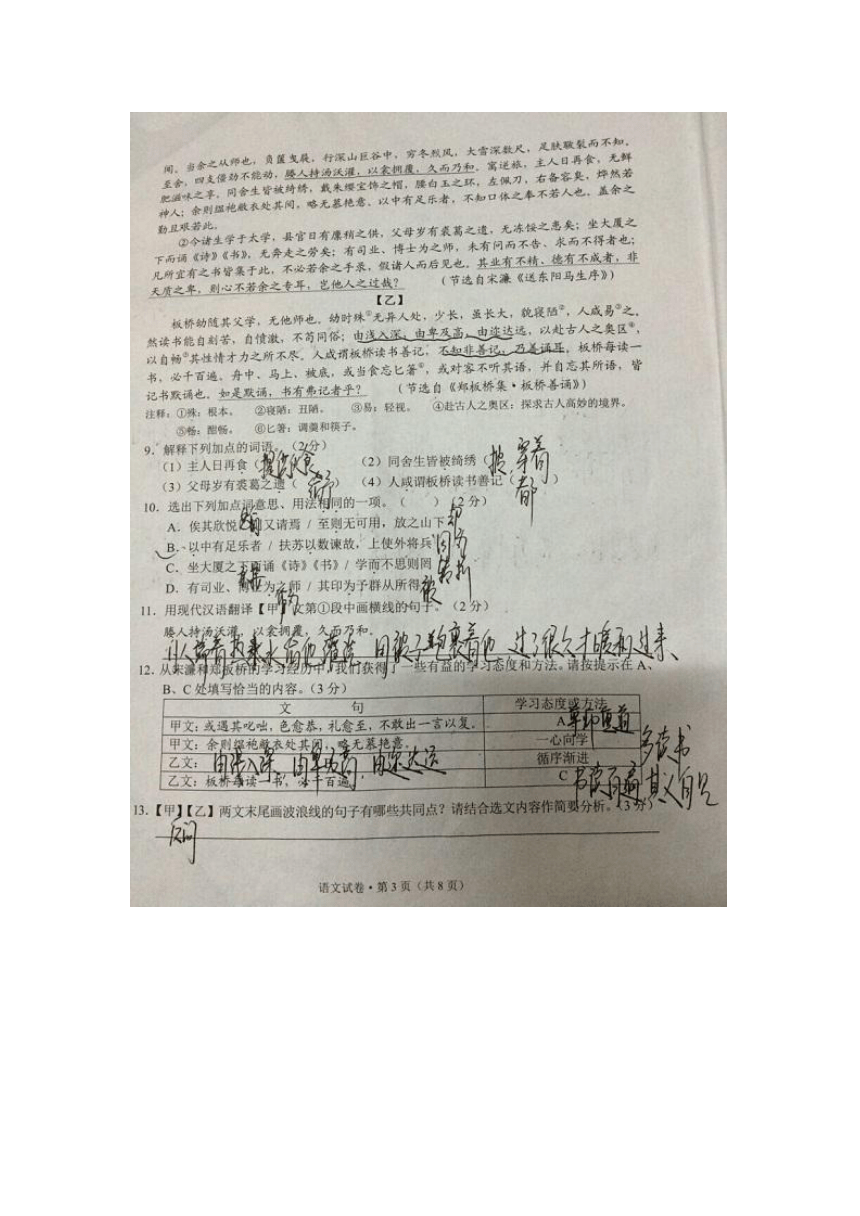 闻。当余之从师也，负箧曳屣，行深山巨谷中，穷冬烈风，大雪深数尺，足肤皲裂而不知。
至舍，四支僵劲不能动，媵人持汤沃灌，以衾拥覆，久而乃和。寓逆旅，主人日再食，无鲜
肥滋味之享。同舍生皆被绮绣，戴朱缨宝饰之帽，腰白玉之环，左佩刀，右备容臭，烨然若
神人；余则缊袍敝衣处其间，略无慕艳意。以中有足乐者，不知口体之奉不若人也。盖余之
勤且艰若此。
②今诸生学于太学，县官日有廪稍之供，父母岁有裘葛之遗，无冻馁之患矣；坐大厦之
下而诵《诗》《书》，无奔走之劳矣；有司业、博士为之师，未有问而不告、求而不得者也；
凡所宜有之书皆集于此，不必若余之手录，假诸人而后见也。其业有不精、德有不成者，非
天质之卑，则心不若余之专耳，岂他人之过哉？ （节选自宋濂《送东阳马生序》）
【乙】
板桥幼随其父学，无他师也。幼时殊①无异人处，少长，虽长大，貌寝陋②，人咸易③之。
然读书能自刻苦，自愤激，不苟同俗；由浅入深，由卑及高，由迩达远，以赴古人之奥区④，
以自畅⑤其性情才力之所不尽。人咸谓板桥读书善记，不知非善记，乃善诵耳。板桥每读一
书，必千百遍。舟中、马上、被底，或当食忘匕箸⑥，或对客不听其语，并自忘其所语，皆
记书默诵也。如是默诵，书有弗记者乎？ （节选自《郑板桥集·板桥善诵》）
注释：①殊：根本。 ②寝陋：丑陋。 ③易：轻视。 ④赴古人之奥区：探求古人高妙的境界。
⑤畅：酣畅。 ⑥匕箸：调羹和筷子。
9．解释下列加点的词语。（2分）
（1）主人日再食（提供伙食 （2）同舍生皆被绮绣（披，穿着
（3）父母岁有裘葛之遗（ ） （4）人咸谓板桥读书善记（都）
10．选出下列加点词意思、用法相同的一项。（ ）（2分）
A．俟其欣悦 又请焉 / 至则无可用，放之山下
B．以中有足乐者 / 扶苏以数谏故，上使外将兵 因为
C．坐大厦之下而诵《诗》《书》/ 学而不思则罔 转折
D．有司业、博士为之师 / 其印为予群从所得 被
11．用现代汉语翻译【甲】文第①段中画横线的句子。（2分）
媵人持汤沃灌，以衾拥覆，久而乃和。
用被子包裹着他 过了很久才暖和过来、
12．从宋濂和郑板桥的学习经历中，我们获得了一些有益的学习态度和方法。请按提示在A、
B、C处填写恰当的内容。（3分）
文 句 学习态度或方法
甲文：或遇其叱咄，色愈恭，礼愈至，不敢出一言以复。 A 尊师重道
甲文：余则缊袍敝衣处其间，略无慕艳意。 一心向学 多读书
乙文：由浅入深，由卑及高，由迩达远 循序渐进
乙文：板桥每读一书，必千百遍 C 书读百遍其义自见
13．【甲】【乙】两文末尾画波浪线的句子有哪些共同点？请结合选文内容作简要分析。（3分）
反问
语文试卷·第3页（共8页）